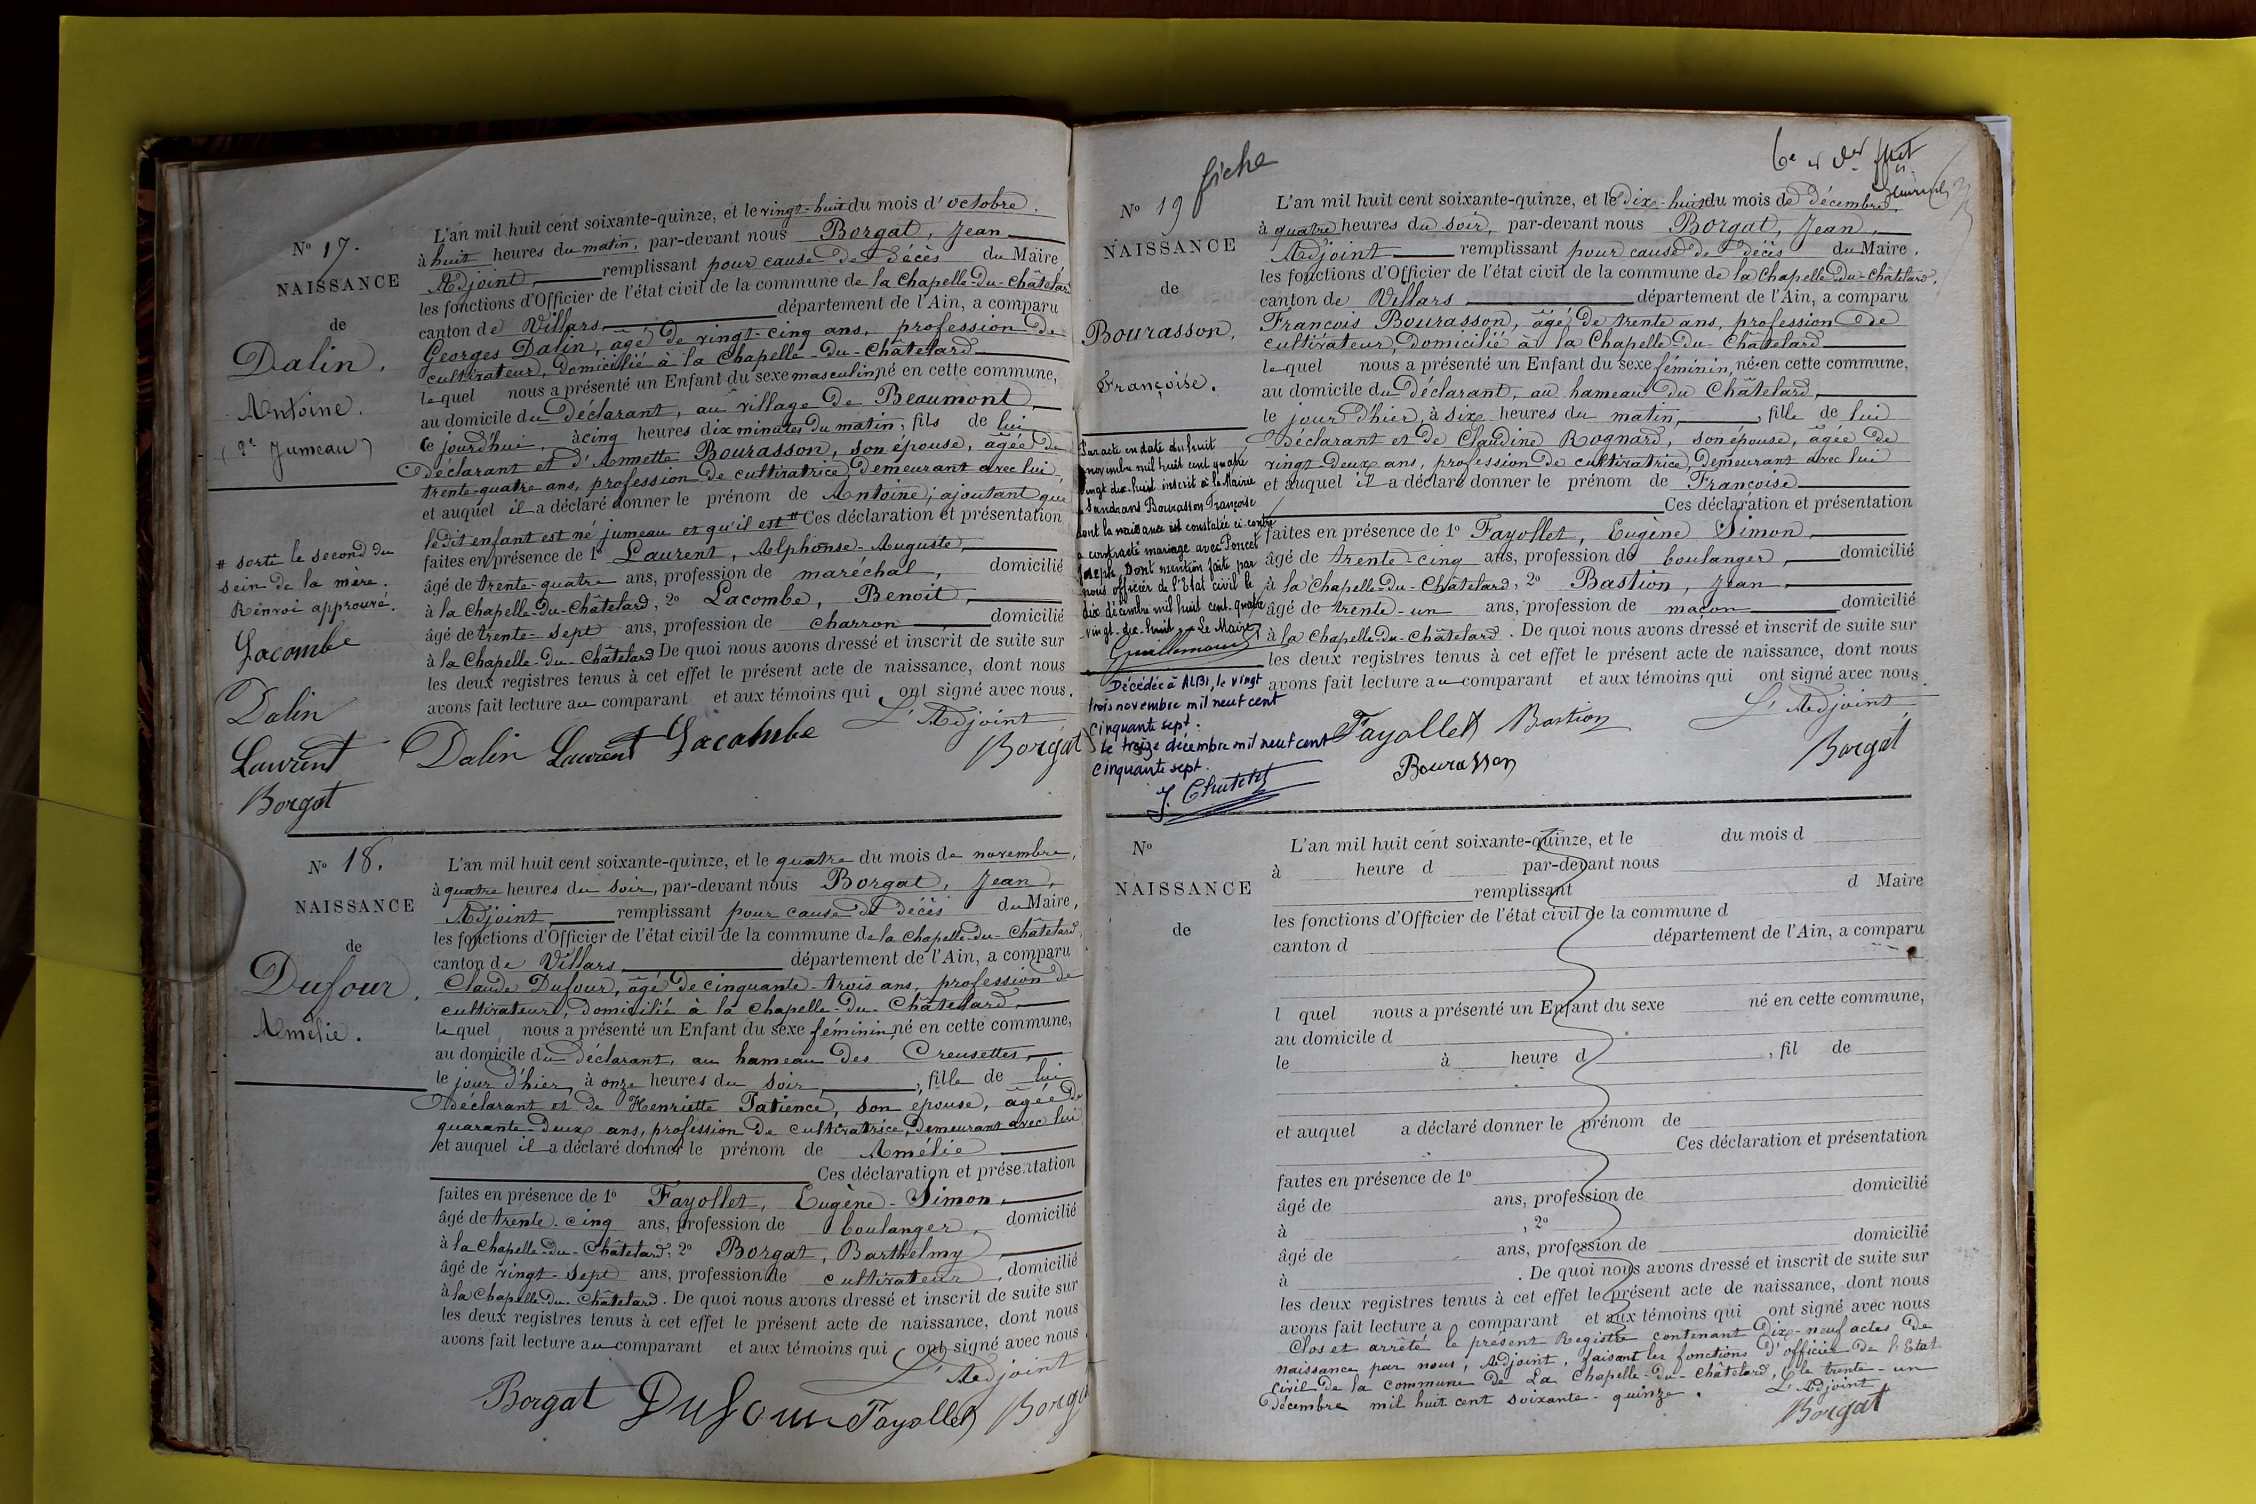 N° 17.
NAISSANCE
de
Dalin,
Antoine.
(2e Jumeau)
# sorti le second du
sein de la mère.
Renvoi approuvé.
Lacombe
Dalin
Laurent
Borgat
L'an mil huit cent soixante-quinze, et le vingt-huit du mois d'octobre.
à huit heures du matin, par-devant nous Borgat, Jean
Adjoint, remplissant pour cause de décès du Maire
les fonctions d'Officier de l'état civil de la commune de la Chapelle-du-Châtelard
canton de Villars département de l'Ain, a comparu
Georges Dalin, âgé de vingt-cinq ans, profession de
cultivateur, domicilié à la Chapelle-du-Châtelard
lequel nous a présenté un Enfant du sexe masculin, né en cette commune,
au domicile du déclarant, au village de Beaumont,
ce jourd'hui, à cinq heures dix minutes du matin, fils de lui
déclarant et d'Annette Bourasson, son épouse, âgée de
trente-quatre ans, profession de cultivatrice, demeurant avec lui,
et auquel il a déclaré donner le prénom de Antoine; ajoutant que
ledit enfant est né jumeau et qu'il est # Ces déclaration et présentation
faites en présence de 1° Laurent, Alphonse-Auguste,
âgé de trente-quatre ans, profession de maréchal, domicilié
à la Chapelle-du-Châtelard, 2° Lacombe, Benoit,
âgé de trente-sept ans, profession de charron, domicilié
à la Chapelle-du-Châtelard De quoi nous avons dressé et inscrit de suite sur
les deux registres tenus à cet effet le présent acte de naissance, dont nous
avons fait lecture au comparant et aux témoins qui ont signé avec nous.
L'Adjoint,
Dalin Laurent Lacombe Borgat
N° 18.
NAISSANCE
de
Dufour,
Amélie.
L'an mil huit cent soixante-quinze, et le quatre du mois de novembre,
à quatre heures du soir, par-devant nous Borgat, Jean,
Adjoint remplissant pour cause de décès du Maire,
les fonctions d'Officier de l'état civil de la commune de la Chapelle-du-Châtelard,
canton de Villars département de l'Ain, a comparu
Claude Dufour, âgé de cinquante-trois ans, profession de
cultivateur, domicilié à la Chapelle-du-Châtelard,
lequel nous a présenté un Enfant du sexe féminin, né en cette commune,
au domicile du déclarant, au hameau des Creusettes,
le jour d'hier, à onze heures du soir, fille de lui
déclarant et de Henriette Patience, son épouse, âgée de
quarante-deux ans, profession de cultivatrice, demeurant avec lui
et auquel il a déclaré donner le prénom de Amélie
Ces déclaration et présentation
faites en présence de 1° Fayollet, Eugène-Simon,
âgé de trente-cinq ans, profession de boulanger, domicilié
à la Chapelle-du-Châtelard, 2° Borgat, Barthelmy,
âgé de vingt-sept ans, profession de cultivateur, domicilié
à la Chapelle-du-Châtelard. De quoi nous avons dressé et inscrit de suite sur
les deux registres tenus à cet effet le présent acte de naissance, dont nous
avons fait lecture au comparant et aux témoins qui ont signé avec nous.
L'Adjoint
Borgat Dufour Fayollet Borgat
fiche
N° 19
NAISSANCE
de
Bourasson,
Françoise.
Par acte en date du huit
novembre mil huit cent quatre
vingt dix-huit inscrit à la Mairie
Sandrans Bourasson Françoise
dont la naissance est constatée ci-contre
a contracté mariage avec Poncet
Joseph, Dont mention faite par
nous officier de l'Etat civil le
dix décembre mil huit cent quatre
vingt-dix-huit. Le Maire
Décédée à ALBI, le vingt
trois novembre mil neuf cent
cinquante sept.
Le treize décembre mil neuf cent
cinquante sept.
L'an mil huit cent soixante-quinze, et le dix-huit du mois de décembre,
à quatre heures du soir, par-devant nous Borgat, Jean,
Adjoint remplissant pour cause de décès du Maire,
les fonctions d'Officier de l'état civil de la commune de la Chapelle-du-Châtelard,
canton de Villars département de l'Ain, a comparu
François Bourasson, âgé de trente ans, profession de
cultivateur, domicilié à la Chapelle-du-Châtelard
lequel nous a présenté un Enfant du sexe féminin, né en cette commune,
au domicile du déclarant, au hameau du Châtelard,
le jour d'hier, à six heures du matin, fille de lui
déclarant et de Claudine Rognard, son épouse, âgée de
vingt-deux ans, profession de cultivatrice, demeurant avec lui
et auquel il a déclaré donner le prénom de Françoise
Ces déclaration et présentation
faites en présence de 1° Fayollet, Eugène Simon
âgé de trente-cinq ans, profession de boulanger, domicilié
à la Chapelle-du-Châtelard, 2° Bastion, Jean
âgé de trente-un ans, profession de maçon domicilié
à la Chapelle-du-Châtelard. De quoi nous avons dressé et inscrit de suite sur
les deux registres tenus à cet effet le présent acte de naissance, dont nous
avons fait lecture au comparant et aux témoins qui ont signé avec nous.
L'Adjoint,
Fayollet Bastion Borgat
Bourasson
N°
NAISSANCE
de
L'an mil huit cent soixante-quinze, et le du mois d
à heure d par-devant nous
remplissant d Maire
les fonctions d'Officier de l'état civil de la commune d
canton d département de l'Ain, a comparu
l quel nous a présenté un Enfant du sexe né en cette commune,
au domicile d
le à heure d , fil de
et auquel a déclaré donner le prénom de
Ces déclaration et présentation
faites en présence de 1°
âgé de ans, profession de domicilié
à , 2°
âgé de ans, profession de domicilié
à . De quoi nous avons dressé et inscrit de suite sur
les deux registres tenus à cet effet le présent acte de naissance, dont nous
avons fait lecture a comparant et aux témoins qui ont signé avec nous
Clos et arrêté le présent Registre contenant dix-neuf actes de
naissance par nous, Adjoint, faisant les fonctions d'officier de l'Etat
civil de la commune de La Chapelle-du-Châtelard, le trente-un
décembre mil huit cent soixante-quinze.
L'Adjoint
Borgat